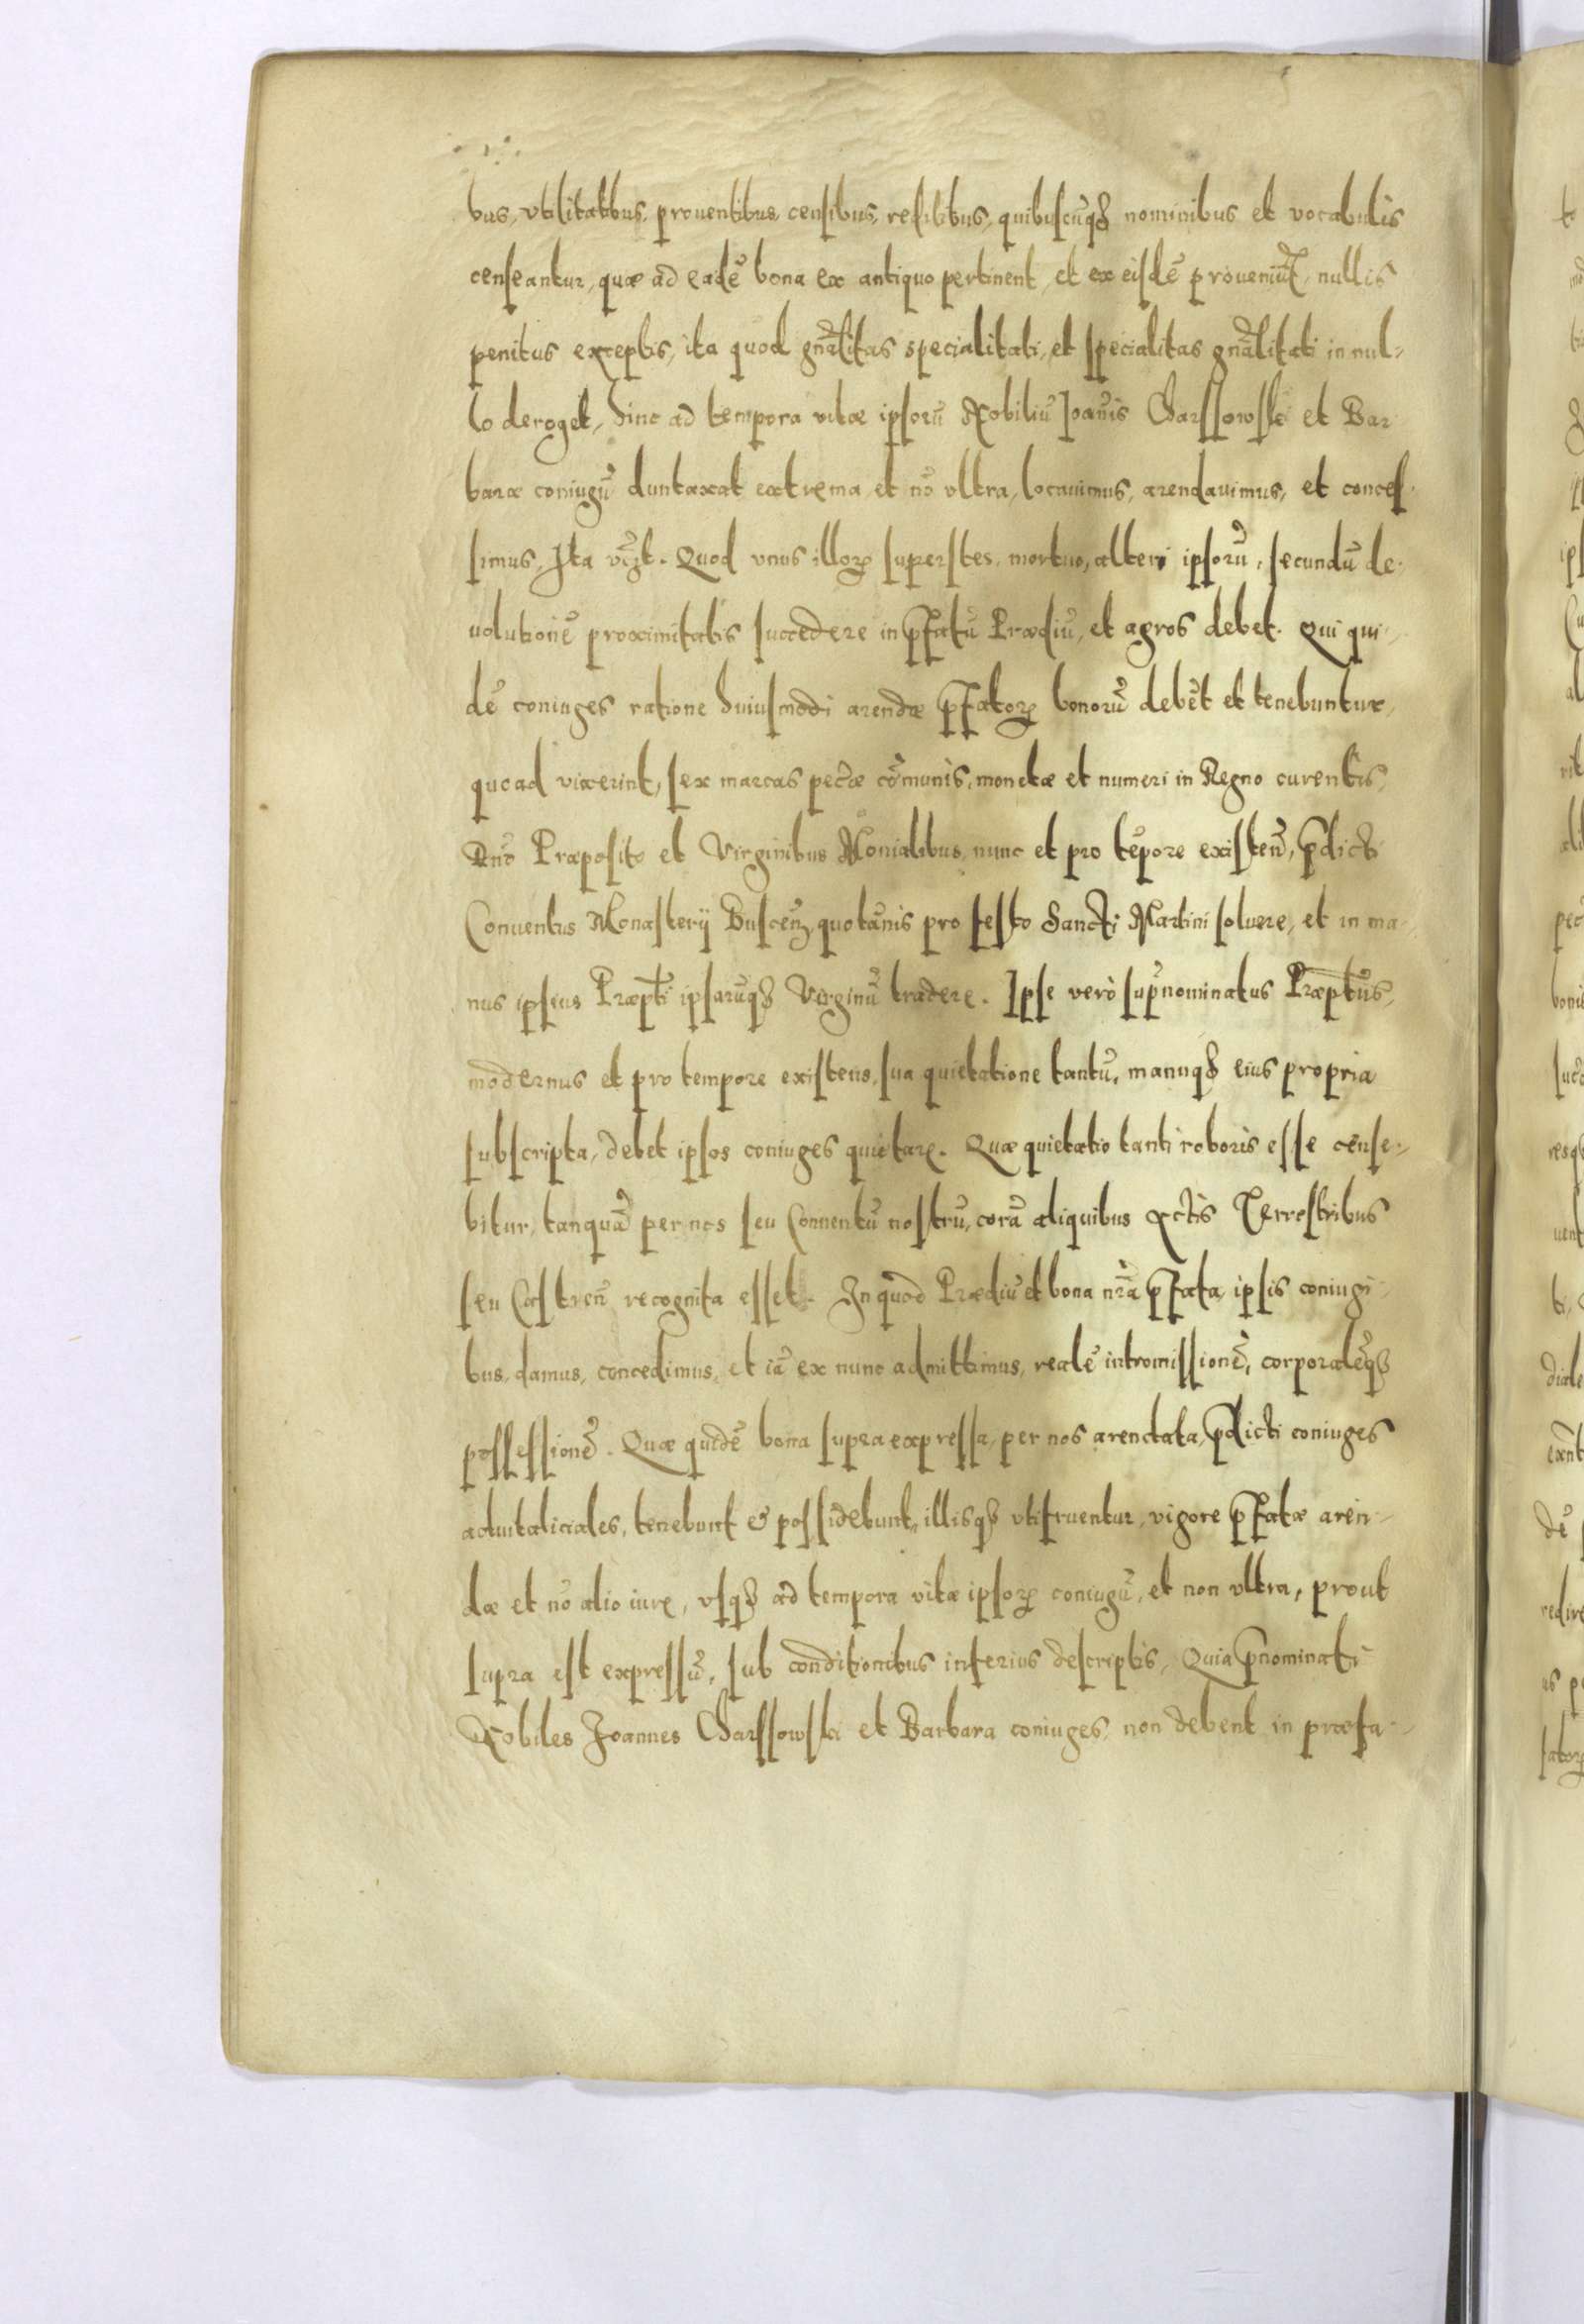 bus, vtilitatibus, prouentibus, censibus, redditibus, quibuscũqȝ nominibus et vocabulis
censeantur, quæ ad eadẽ bona ex antiquo pertinent, et ex eisdẽ proveniũt, nullis
penitus exceptis, ita quod gnãlitas specialitati, et specialitas gnãlitati in nul-
lo deroget, hinc ad tempora vitæ ipsorũ Nobiliũ Joãnis Charssowski et Bar
baræ coniugũ duntaxat extrema, et nõ vltra, locauimus, arendauimus, et conces-
simus, Ita vizt. Quod vnus illorꝝ superstes, mortuo, alteri ipsorũ, secundũ de-
uolutionẽ proximitatis succedere in p̃fatũ Prædiũ, et agros debet. Qui qui-
dẽ coniuges ratione huiusmodi arendæ p̃fatorꝝ bonorũ debẽt et tenebuntur,
quoad vixerint, sex marcas pecũæ cõmunis, monetæ et numeri in Regno curentis,
Rñdo Præposito et Virginibus Monialibus, nunc et pro tẽpore existeñ, p̃dicti
Conuentus Monasterij Busceñ, quotãnis pro festo Sancti Martini soluere, et in ma-
nus ipsius Præpti ipsarũqȝ Virginũ tradere. Ipse verò sup̃nominatus Præptus,
modernus et pro tempore existens, sua quietatione tantũ, manuqȝ eius propria
subscripta, debet ipsos coniuges quietare. Quæ quietatio tanti roboris esse cense-
bitur, tanquã per nos seu Conuentũ nostrũ, corã aliquibus Actis Terrestribus
seu Castreñ recognita esset. In quod Prædiũ et bona nr̃a p̃fata, ipsis coniugi-
bus, damus, concedimus, et iã ex nunc admittimus, realẽ intromissionẽ, corporalẽqȝ
possessionẽ. Quæ quidẽ bona supra expressa, per nos arendata, p̃dicti coniuges
aduitaliciales, tenebunt & possidebunt, illisqȝ vtifruentur, vigore p̃fatæ aren-
dæ et nõ alio iure, vsqȝ ad tempora vitæ ipsorꝝ coniugũ, et non vltra, prout
supra est expressũ, sub conditionibus inferius descriptis, Quia p̃nominati
Nobiles Joannes Charssowski et Barbara coniuges, non debent in præfa-